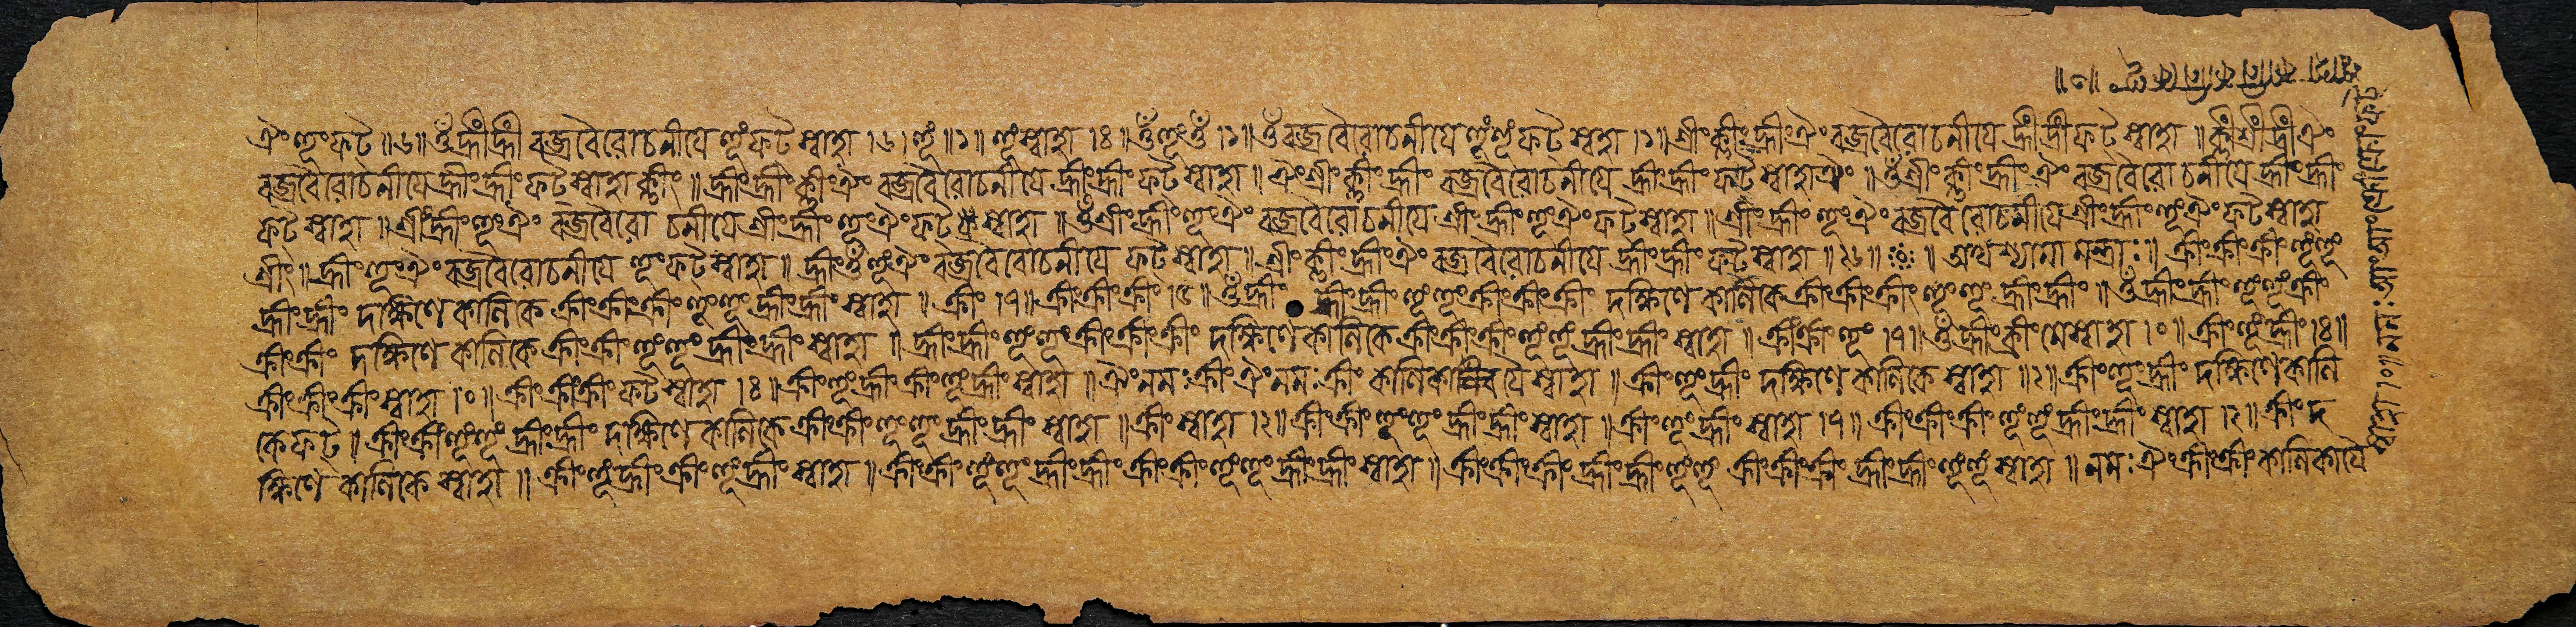 ঐং হূং ফট ॥৬॥ ওঁ হ্রীং হ্রীং বজ্রবৈরোচনীযে হূং ফট স্বাহা ।৬। হূং ॥১॥ হূং স্বাহা ।ঃ॥ ওঁ হূং ওঁ ।১॥ ওঁ বজ্রবৈরোচনীযে হূং হূং ফট স্বাহা ।১॥ শ্রীং ক্লীং হ্রীং ঐং বজ্রবৈরোচনীযে হ্রীং হ্রীং ফট স্বাহা ॥ ক্লীং শ্রীং হ্রীং ঐং
বজ্রবৈরোচনীযে হ্রীং হ্রীং ফট স্বাহা ক্লীং ॥ হ্রীং হ্রীং ক্লীং ঐং বজ্রবৈরোচনীযে হ্রীং হ্রীং ফট স্বাহা ॥ ঐং শ্রীং ক্লীং হ্রীং বজ্রবৈরোচনীযে হ্রীং হ্রীং ফট স্বাহা ঐং ॥ ওঁ শ্রীং ক্লীং হ্রীং ঐং বজ্রবৈরোচনীযে হ্রীং হ্রীং
ফট স্বাহা ॥ শ্রীং হ্রীং হূং ঐং বজ্রবৈরোচনীযে শ্রীং হ্রীং হূং ঐং ফট স্বাহা ॥ ওঁ শ্রীং হ্রীং হূং ঐং বজ্রবৈরোচনীযে শ্রীং হ্রীং হূং ঐং ফট স্বাহা ॥ শ্রীং হ্রীং হূং ঐং বজ্রবৈরোচনীযে শ্রীং হ্রীং হূং ঐং ফট স্বাহা
শ্রীং ॥ হ্রীং হূং ঐং বজ্রবৈরোচনীযে হূং ফট স্বাহা ॥ হ্রীং ওঁ হূং ঐং বজ্রবৈরোচনীযে ফট স্বাহা ॥ শ্রীং ক্লীং হ্রীং ঐং বজ্রবৈরোচনীযে হ্রীং হ্রীং ফট স্বাহা ॥২৬॥ ॥ অথ শ্যামা মন্ত্রাঃ ॥ ক্রীং ক্রীং ক্রীং হূং হূং
হ্রীং হ্রীং দক্ষিণে কালিকে ক্রীং ক্রীং ক্রীং হূং হূং হ্রীং হ্রীং স্বাহা ॥ ক্রীং ।৭॥ ক্রীং ক্রীং ক্রীং ।৫॥ ওঁ হ্রীং হ্রীং হ্রীং হূং হূং ক্রীং ক্রীং ক্রীং দক্ষিণে কালিকে ক্রীং ক্রীং ক্রীং হূং হূং হ্রীং হ্রীং ॥ ওঁ হ্রীং হ্রীং হূং হূং ক্রীং
ক্রীং ক্রীং দক্ষিণে কালিকে ক্রীং ক্রীং হূং হূং হ্রীং হ্রীং স্বাহা ॥ হ্রীং হ্রীং হূং হূং ক্রীং ক্রীং ক্রীং দক্ষিণে কালিকে ক্রীং ক্রীং ক্রীং হূং হূং হ্রীং হ্রীং স্বাহা ॥ ক্রীং ক্রীং হূং ।৭॥ ওঁ হ্রীং ক্রীং মে স্বাহা ।০॥ ক্রীং হূং হ্রীং ।ঃ॥
ক্রীং ক্রীং ক্রীং স্বাহা ।০॥ ক্রীং ক্রীং ক্রীং ফট স্বাহা ।ঃ॥ ক্রীং হূং হ্রীং ক্রীং হূং হ্রীং স্বাহা ॥ ঐং নমঃ ক্রীং ঐং নমঃ ক্রীং কালিকাযে স্বাহা ॥ ক্রীং হূং হ্রীং দক্ষিণে কালিকে স্বাহা ॥২॥ ক্রীং হূং হ্রীং দক্ষিণে কালি
কে ফট ॥ ক্রীং ক্রীং হূং হূং হ্রীং হ্রীং দক্ষিণে কালিকে ক্রীং ক্রীং হূং হূং হ্রীং হ্রীং স্বাহা ॥ ক্রীং স্বাহা ।২॥ ক্রীং ক্রীং হূং হূং হ্রীং হ্রীং স্বাহা ॥ ক্রীং হূং হ্রীং স্বাহা ।৭॥ ক্রীং ক্রীং ক্রীং হূং হূং হ্রীং হ্রীং স্বাহা ।২॥ ক্রীং দ
ক্ষিণে কালিকে স্বাহা ॥ ক্রীং হূং হ্রীং ক্রীং হূং হ্রীং স্বাহা ॥ ক্রীং ক্রীং হূং হূং হ্রীং হ্রীং ক্রীং ক্রীং হূং হূং হ্রীং হ্রীং স্বাহা ॥ ক্রীং ক্রীং ক্রীং হ্রীং হ্রীং হূং হূং ক্রীং ক্রীং ক্রীং হ্রীং হ্রীং হূং হূং স্বাহা ॥ নমঃ ঐং ক্রীং ক্রীং কালিকাযৈ